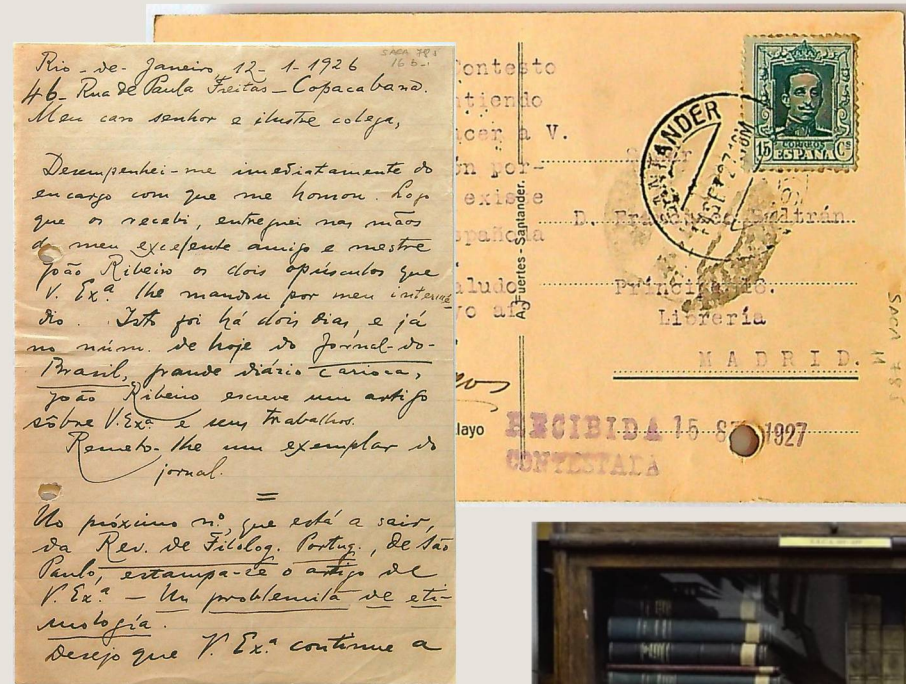 SACA 785
16 b-1
Rio-de-Janeiro 12-1-1926
46-Rua de Paula Freitas-Copacabana.
Meu caro senhor e ilustre colega,
Desempenhei-me imediatamente do
encargo com que me honrou. Logo
que os recebi, entreguei nas mãos
do meu excelente amigo e mestre
João Ribeiro os dois opusculos que
V. Ex.ª lhe mandou por meu intermé
dio. Isto foi há dois dias, e já
no núm. de hoje do Jornal-do-
Brasil, grande diário carioca,
João Ribeiro escreve um artigo
sôbre V. Ex.ª e seus trabalhos.
Remeto-lhe um exemplar do
jornal.
=
No próximo nº, que está a sair,
da Rev. de Filolog. Portug., de São
Paulo, estampa-se o artigo de
V. Ex.ª - Un problemita de eti-
mología.
Desejo que V. Ex.ª continue a
ontesto
tiendo
cer a V.
ón por-
existe
spañola
aludo
vo af
gos
layo
A. Fuertes Santander.
SANTANDER
SET 27
15 CORREOS Cs
ESPAÑA
D. Francisco Beltrán.
Príncipe 16.
Librería
MADRID.
RECIBIDA 15 1927
CONTESTADA
SACA 785